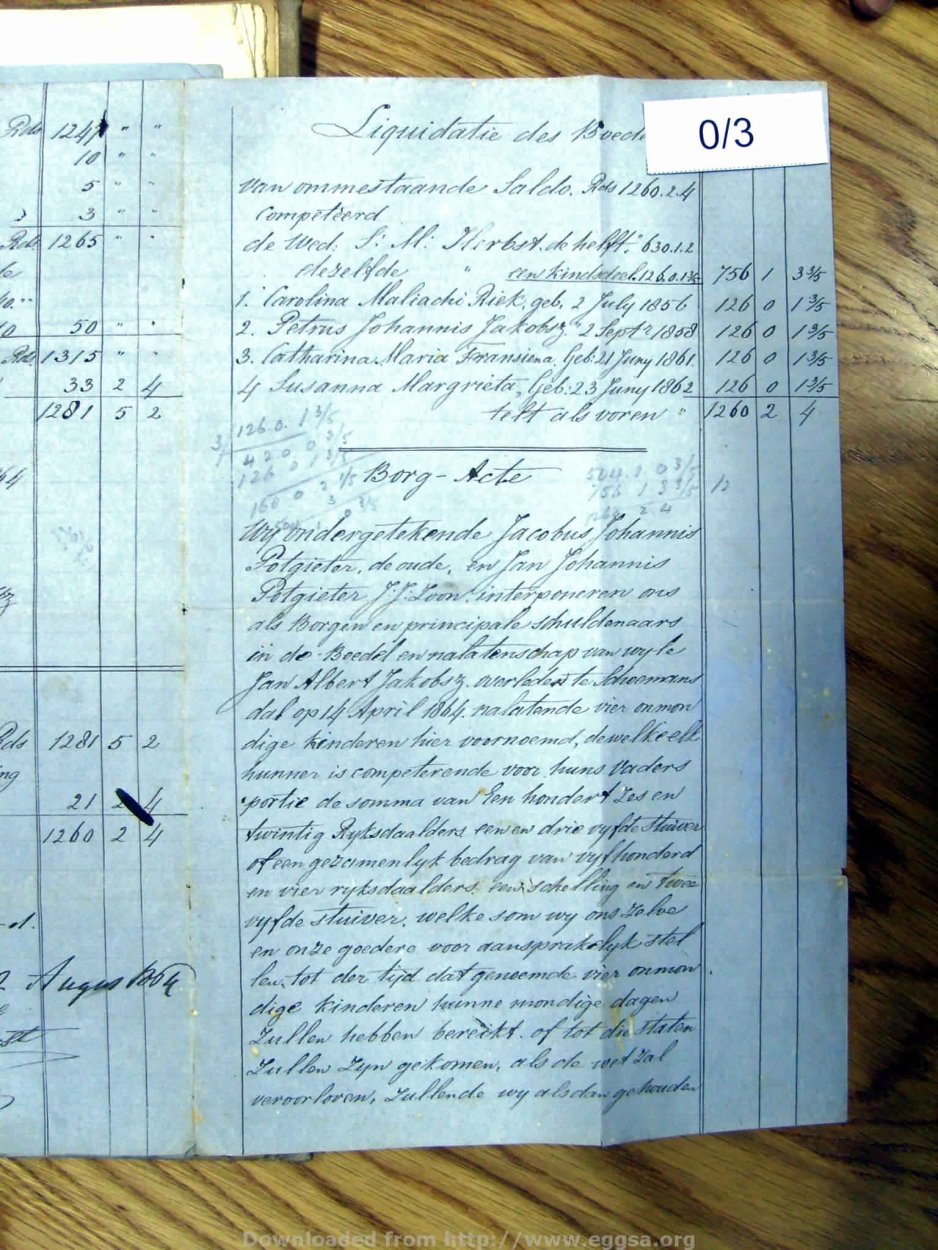 Rds 1247 " "
10 " "
5 " "
3 " "
Rds 1265 " "
50 " "
Rds. 1315 " "
33 2 4
1281 5 2
Rds 1281 5 2
21 2 4
1260 2 4
Augus 1864
0/3
Liquidatie des Boede
van ommestaande Saldo. Rds 1260.2.4
Competeerd
de Wed: S: M: Herbst. de helft " 630.1.2
dezelfde " een kindsdeel. 126.0.1 3/5 756 1 3 3/5
1. Carolina Maliachi Riek, geb, 2 July 1856 126 0 1 3/5
2. Petrus Johannis Jakobsz, " 2 Septr 1858 126 0 1 3/5
3. Catharina Maria Fransiena, Geb: 21 Juny 1861. 126 0 1 3/5
4 Susanna Margrieta, Geb. 23 Juny 1862 126 0 1 3/5
telt als voren " 1260 2 4
3/ 126.0. 1 3/5
126 0 1 3/5
756 1 3 3/5
Borg - Acte
Wy ondergetekende Jacobus Johannis
Potgieter, de oude, en Jan Johannis
Potgieter J:J: Zoon, interponeren ons
als Borgen en principale schuldenaars
in de Boedel en nalatenschap van wyle
Jan Albert Jakobsz. overleden te Schoemans
dal op 14 April 1864. nalatende vier onmon
dige kinderen hier voornoemd, dewelke elk
hunner is competerende voor huns Vaders
portie de somma van Een hondert Zes en
twintig Ryksdaalders een en drie vyfde stuiver
of een gezamenlyk bedrag van vyfhonderd
en vier ryksdaalders, een schelling en twee
vyfde stuiver, welke som wy ons Zelve
en onze goedere voor aansprakelyk stel
len, tot der tyd dat genoemde vier onmon
dige kinderen hunne mondige dagen
Zullen hebben bereikt. of tot die staten
Zullen Zyn gekomen, als de wet Zal
veroorloven, Zullende wy alsdan gehouden
Downloaded from http://www.eggsa.org